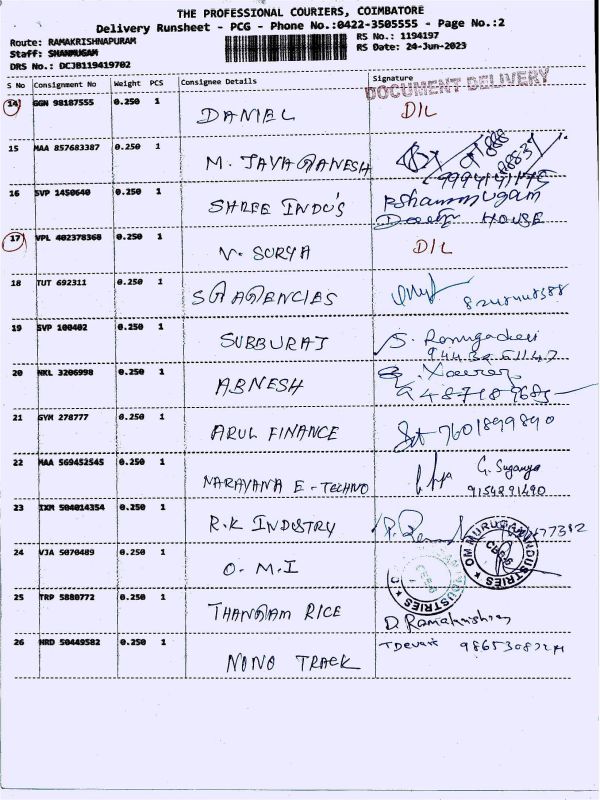 THE PROFESSIONAL COURIERS, COIMBATORE
Delivery Runsheet - PCG - Phone No.:0422-3505555 - Page No.:2
Route: RAMAKRISHNAPURAM
RS No.: 1194197
Staff: SHANMUGAM
RS Date: 24-Jun-2023
DRS No.: DCJB119419702
S No Consignment No Weight PCS Consignee Details Signature
DOCUMENT DELIVERY
14 GGN 98187555 0.250 1 DANIEL D/L
15 MAA 857683387 0.250 1 M. JAYAGANESH
16 SVP 1450640 0.250 1 SHREE INDU'S Shanmugam
HOUSE
17 VPL 402378368 0.250 1 V. SURYA D/L
18 TUT 692311 0.250 1 S G AGENCIES
19 SVP 100402 0.250 1 SUBBURAJ S.
20 NKL 3206998 0.250 1 ABNESH
21 GYM 278777 0.250 1 ARUL FINANCE 7601899890
22 MAA 569452545 0.250 1 NARAYANA E-TECHNO G. Suganya
9154291490
23 IXM 504014354 0.250 1 R.K INDUSTRY
24 VJA 5070489 0.250 1 O.M.I OM MURUGAN INDUSTRIES
25 TRP 5880772 0.250 1 THANGAM RICE D. Ramakrishnan
26 HRD 50449582 0.250 1 NONO TRACK